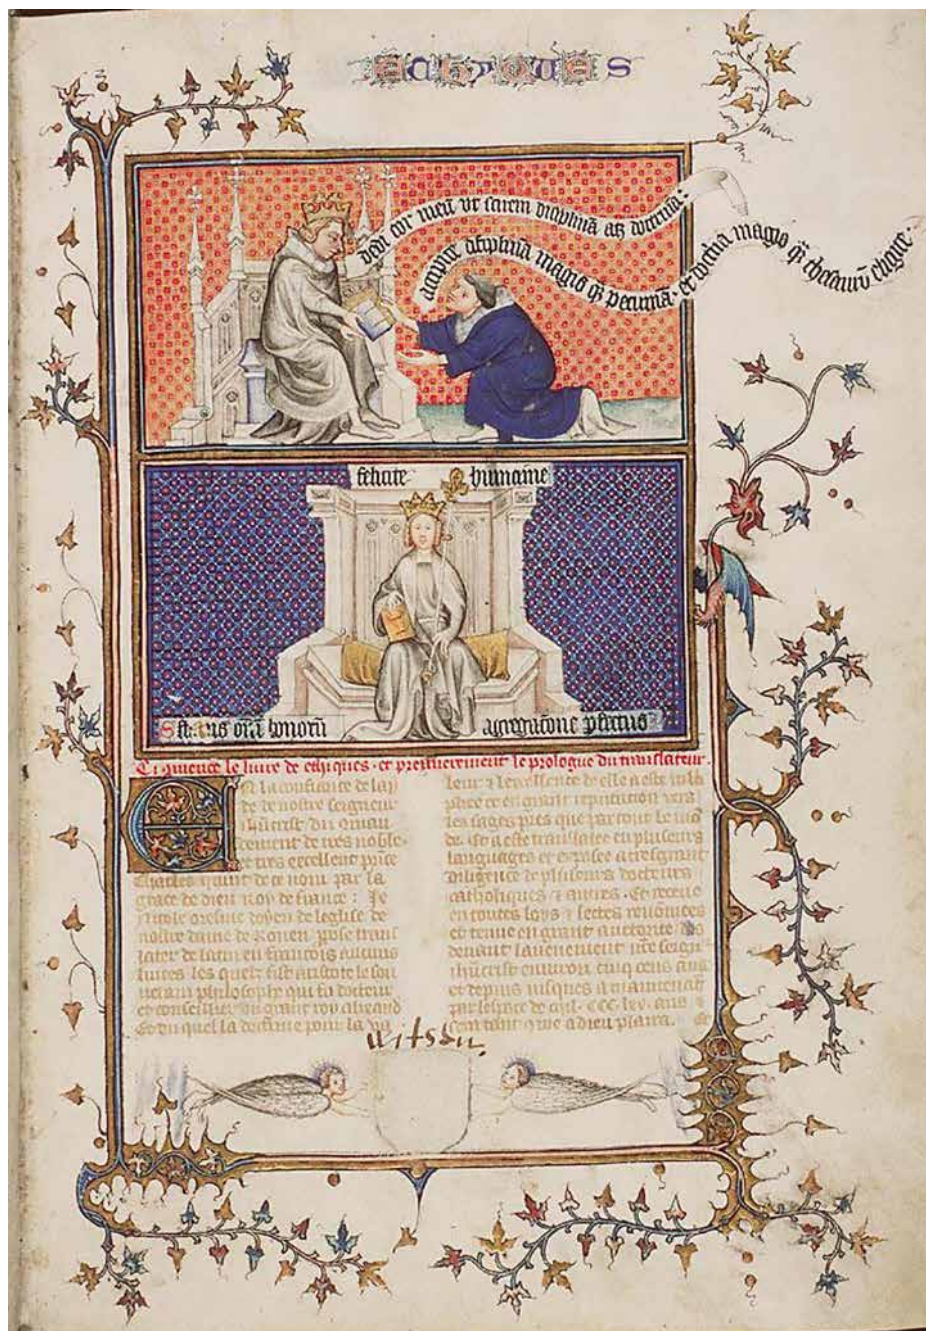 ETHYQUES
dedi cor meū ut scirem disciplinā atqȝ doctrinā
accipite disciplinā magis qȝ pecuniā · et doctrinā magis qȝ thesaurū eligite
felicite humaine
Status oīm bonorū agregatione pfectus
Ci cōmence le liure de ethiques · et premierement le prologue du translateur .
En la confiance de lay
de de nostre seigneur
ihūcrist du cōman
dement de tres noble
et tres excellent price
Charles quint de ce nom par la
grace de dieu roy de france : Je
Nicole oresme doyen de leglise de
nostre dame de Rouen ppose trans
later de latin en francois aucuns
liures les quelz fist aristote le sou
uerain philosophe qui fu docteur
et conseillier du grant roy alixand
Et du quel la doctrine pour la va
leur & lexellence de elle a este mlt
et en grant reputation vers
les sages pres que par tout le mō
de. Et a este translatee en pluseurs
languages et exposee a tresgrant
diligence de pluseurs docteurs
catholiques & autres . Et receue
en toutes loys & sectes renōmees
et tenue en grant auctorite des
deuant lauenement nr̄e seignr
ihūcrist enuiron cinq cens ans
et depuis iusques a maintenant
par lespace de mil . CCC . lxx . ans &
a dieu plaira . Et
witsen.